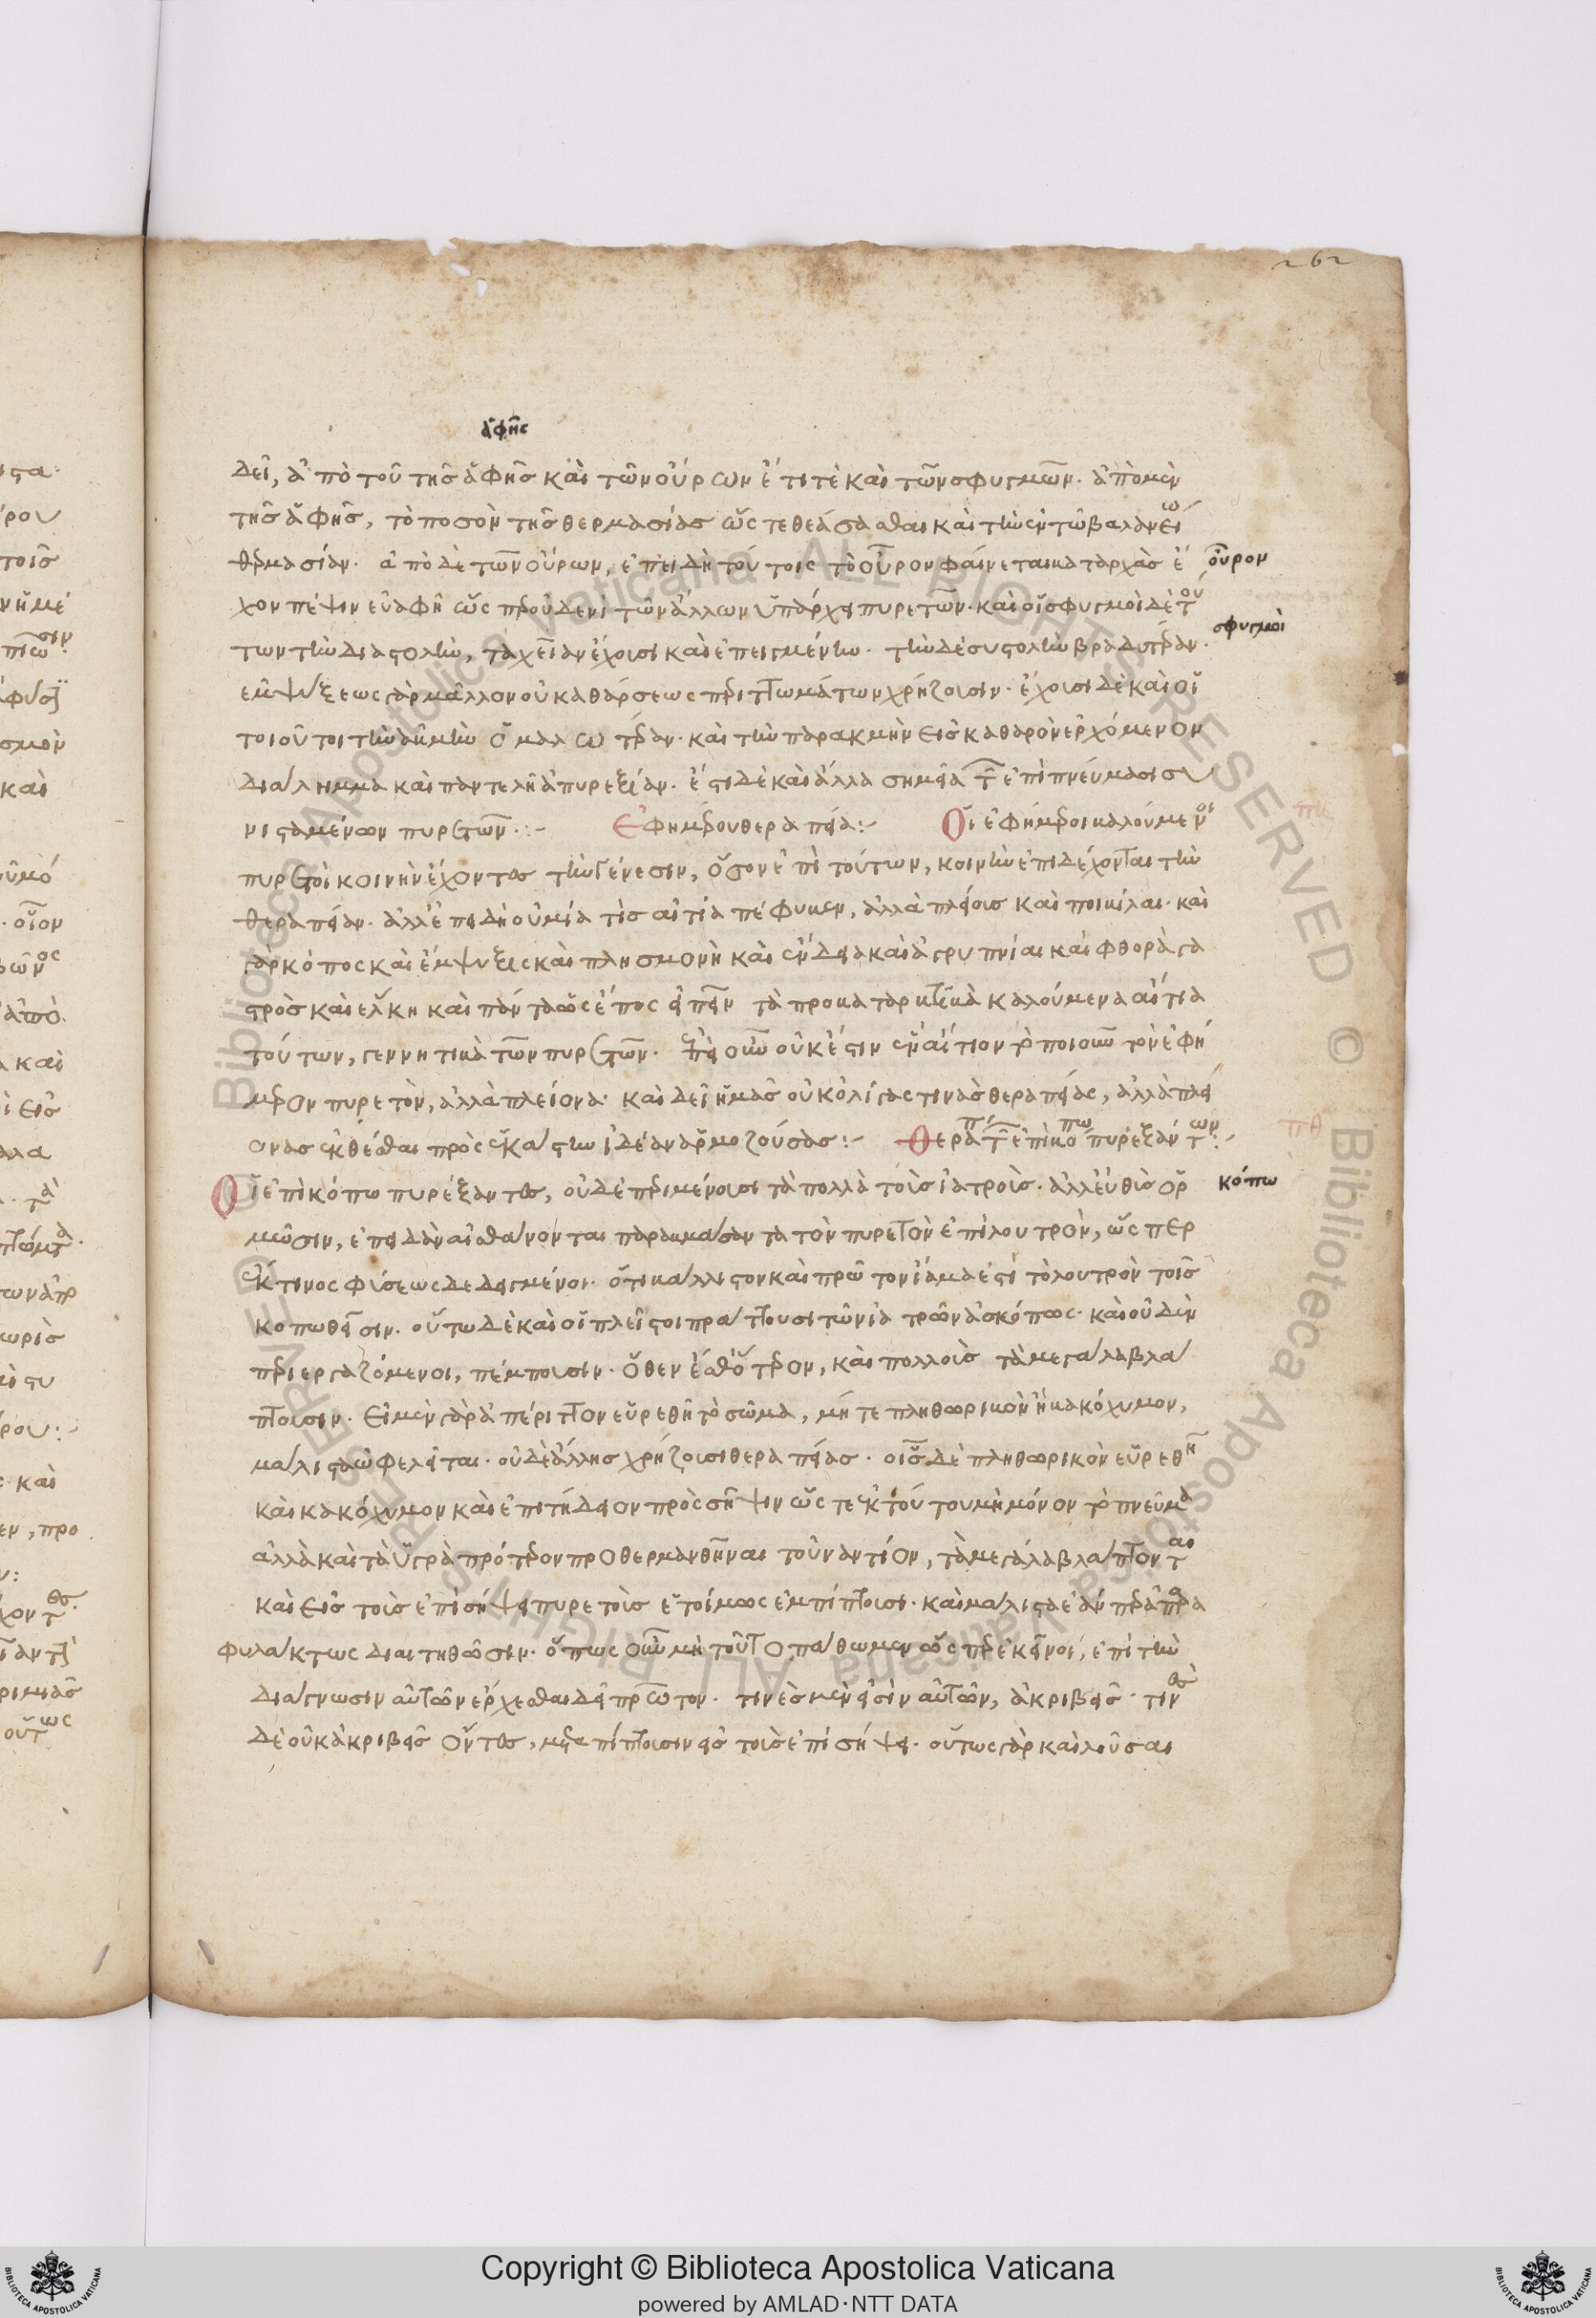 262
ἁφῆς
δεῖ, ἀπὸ τοῦ τῆς ἁφῆς καὶ τῶν οὔρων ἔτι τὲ καὶ τῶν σφυγμῶν. ἀπὸ μὲν
τῆς ἁφῆς, τὸ ποσὸν τῆς θερμασίας ὥς τε θεάσασθαι καὶ τὴν ἐν τῶ βαλανείω
θερμασίαν. ἀπὸ δὲ τῶν οὔρων, ἐπειδὴ τούτοις τὸ οὖρον φαίνεται κατ αρχὰς ἔ
οὖρον
χον πέψιν εὐαφῆ ὡς περ οὐδενὶ τῶν ἄλλων ὑπάρχει πυρετῶν. καὶ οἱ σφυγμοὶ δὲ τού
σφυγμοὶ
των τὴν διαστολὴν, ταχεῖαν ἔχουσι καὶ ἐπειγμένην. τὴν δὲ συστολὴν βραδυτέραν.
ἐμψύξεως γὰρ μᾶλλον οὐ καθάρσεως περιττωμάτων χρήζουσιν. ἔχουσι δὲ καὶ οἱ
τοιοῦτοι τὴν ἀκμὴν ὁμαλωτέραν. καὶ τὴν παρακμὴν εἰς καθαρὸν ἐρχόμενον
διάλημμα καὶ παντελῆ ἀπυρεξίαν. ἔστι δὲ καὶ ἄλλα σημεῖα τῶν ἐπὶ πνεύμασι συ
νισταμένων πυρετῶν.:- Ἐφημέρου θεραπεία:- Οἱ ἐφήμεροι καλούμενοι
πυρετοὶ κοινὴν ἔχοντες τὴν γένεσιν, ὅσον ἐπὶ τούτων, κοινὴν ἐπιδέχονται τὴν
θεραπείαν. ἀλλ ἐπειδὴ οὐ μία τίς αἰτία πέφυκεν, ἀλλὰ πλείους καὶ ποικίλαι. καὶ
γὰρ κόπος καὶ ἔμψυξις καὶ πλησμονὴ καὶ ἔνδεια καὶ ἀγρυπνίαι καὶ φθορὰ γα
στρὸς καὶ ἕλκη καὶ πάντα ὡς ἔπος εἰπεῖν τὰ προκαταρκτικὰ καλούμενα αἴτια
τούτων, γεννητικὰ τῶν πυρετῶν. ἐπεὶ οὖν οὐκ ἔστιν ἓν αἴτιον τὸ ποιοῦν τὸν ἐφή
μερον πυρετὸν, ἀλλὰ πλείονα. καὶ δεῖ ἡμᾶς οὐκ ὀλίγας τινὰς θεραπείας, ἀλλὰ πλεί
ονας ἐκθέσθαι πρὸς ἑκάστην ἰδέαν ἁρμοζούσας:- Θεραπεία τῶν ἐπὶ κόπω πυρεξάντων:-
Οἱ ἐπὶ κόπω πυρέξαντες, οὐδὲ περιμένουσι τὰ πολλὰ τοὺς ἰατρούς. ἀλλ εὐθὺς ὁρ
κόπω
μῶσιν, ἐπειδὰν αἰσθάνονται παρακμάσαντα τὸν πυρετὸν ἐπὶ λουτρὸν, ὥς περ
ἔκ τινος φύσεως δεδειγμένοι. ὅτι κάλλιστον καὶ πρῶτον ἴαμα ἐστὶ τὸ λουτρὸν τοῖς
κοπωθεῖσιν. οὕτω δὲ καὶ οἱ πλεῖστοι πράττουσι τῶν ἰατρῶν ἀσκόπως. καὶ οὐδὲν
περιεργαζόμενοι, πέμπουσιν. ὅθεν ἔσθ ὅτε ρον, καὶ πολλοὺς τὰ μεγάλα βλά
πτουσιν. εἰ μὲν γὰρ ἀπέριττον εὑρεθῆ τὸ σῶμα, μήτε πληθωρικὸν ἢ κακόχυμον,
μάλιστα ὠφελεῖται. οὐδὲ ἄλλης χρήζουσι θεραπείας. οἷς δὲ πληθωρικὸν εὑρεθῆ
καὶ κακόχυμον καὶ ἐπιτήδειον πρὸς σῆψιν ὥς τε ἐκ τούτου μὴ μόνον τὸ πνεῦμα
ἀλλὰ καὶ τὰ ὑγρὰ πρότερον προθερμανθῆναι τοὐναντίον, τὰ μεγάλα βλάπτονται
καὶ εἰς τοὺς ἐπὶ σήψει πυρετοὺς ἑτοίμως ἐμπίπτουσι. καὶ μάλιστα ἐὰν παρὰ
φυλάκτως διαιτηθῶσιν. ὅπως οὖν μὴ τοῦτο πάθωμεν ὥς περ ἐκεῖνοι, ἐπὶ τὴν
διάγνωσιν αὐτῶν ἔρχεσθαι δεῖ πρῶτον. τινὲς μὲν εἰσὶν αὐτῶν, ἀκριβεῖς. τινὲς
δὲ οὐκ ἀκριβεῖς ὄντες, μεταπίπτουσιν εἰς τοὺς ἐπὶ σήψει. οὕτως γὰρ καὶ λοῦσαι
Copyright © Biblioteca Apostolica Vaticana
powered by AMLAD·NTT DATA